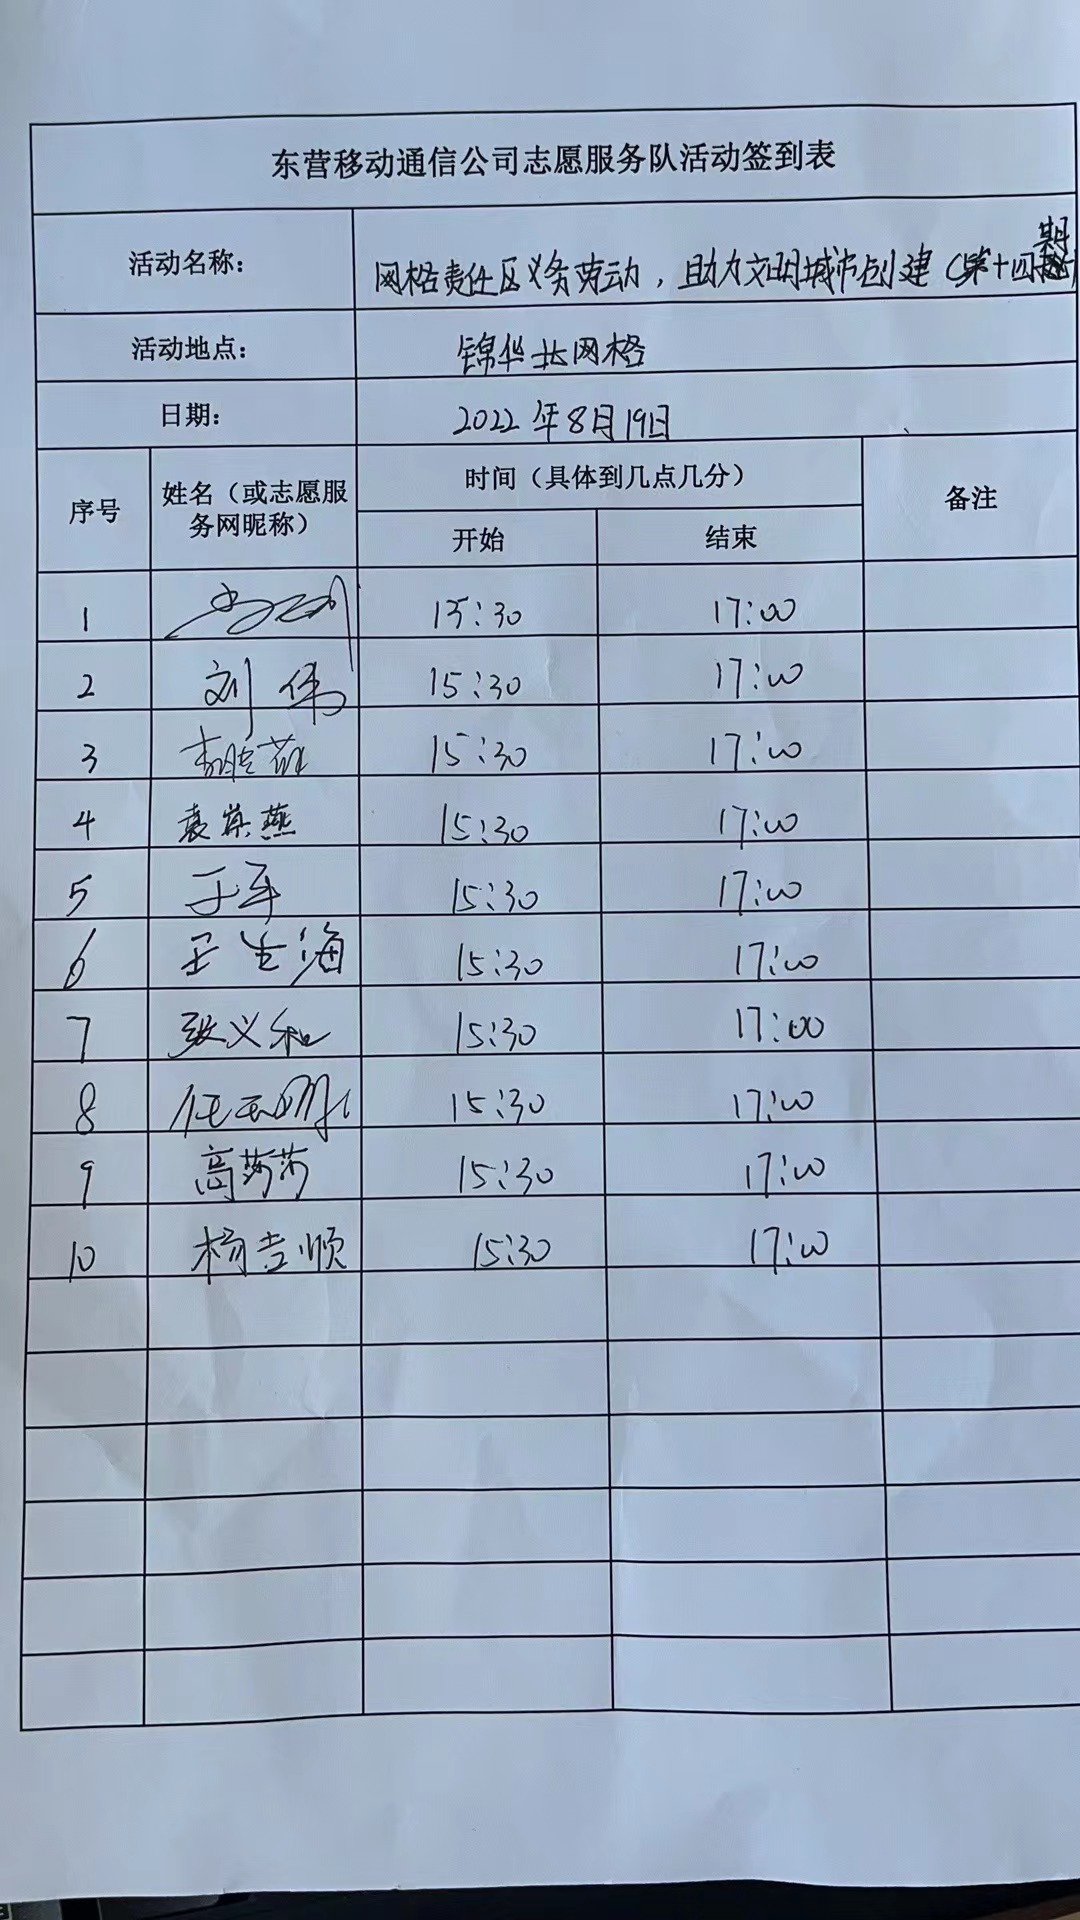 东营移动通信公司志愿服务队活动签到表
活动名称： 网格责任区义务劳动，助力文明城市创建（第十四期）
活动地点： 锦华北网格
日期： 2022年8月19日
序号 姓名（或志愿服务网昵称） 时间（具体到几点几分） 备注
开始 结束
1 15:30 17:00
2 刘伟 15:30 17:00
3 15:30 17:00
4 袁英燕 15:30 17:00
5 于军 15:30 17:00
6 王生海 15:30 17:00
7 张义和 15:30 17:00
8 15:30 17:00
9 高莎莎 15:30 17:00
10 杨吉顺 15:30 17:00